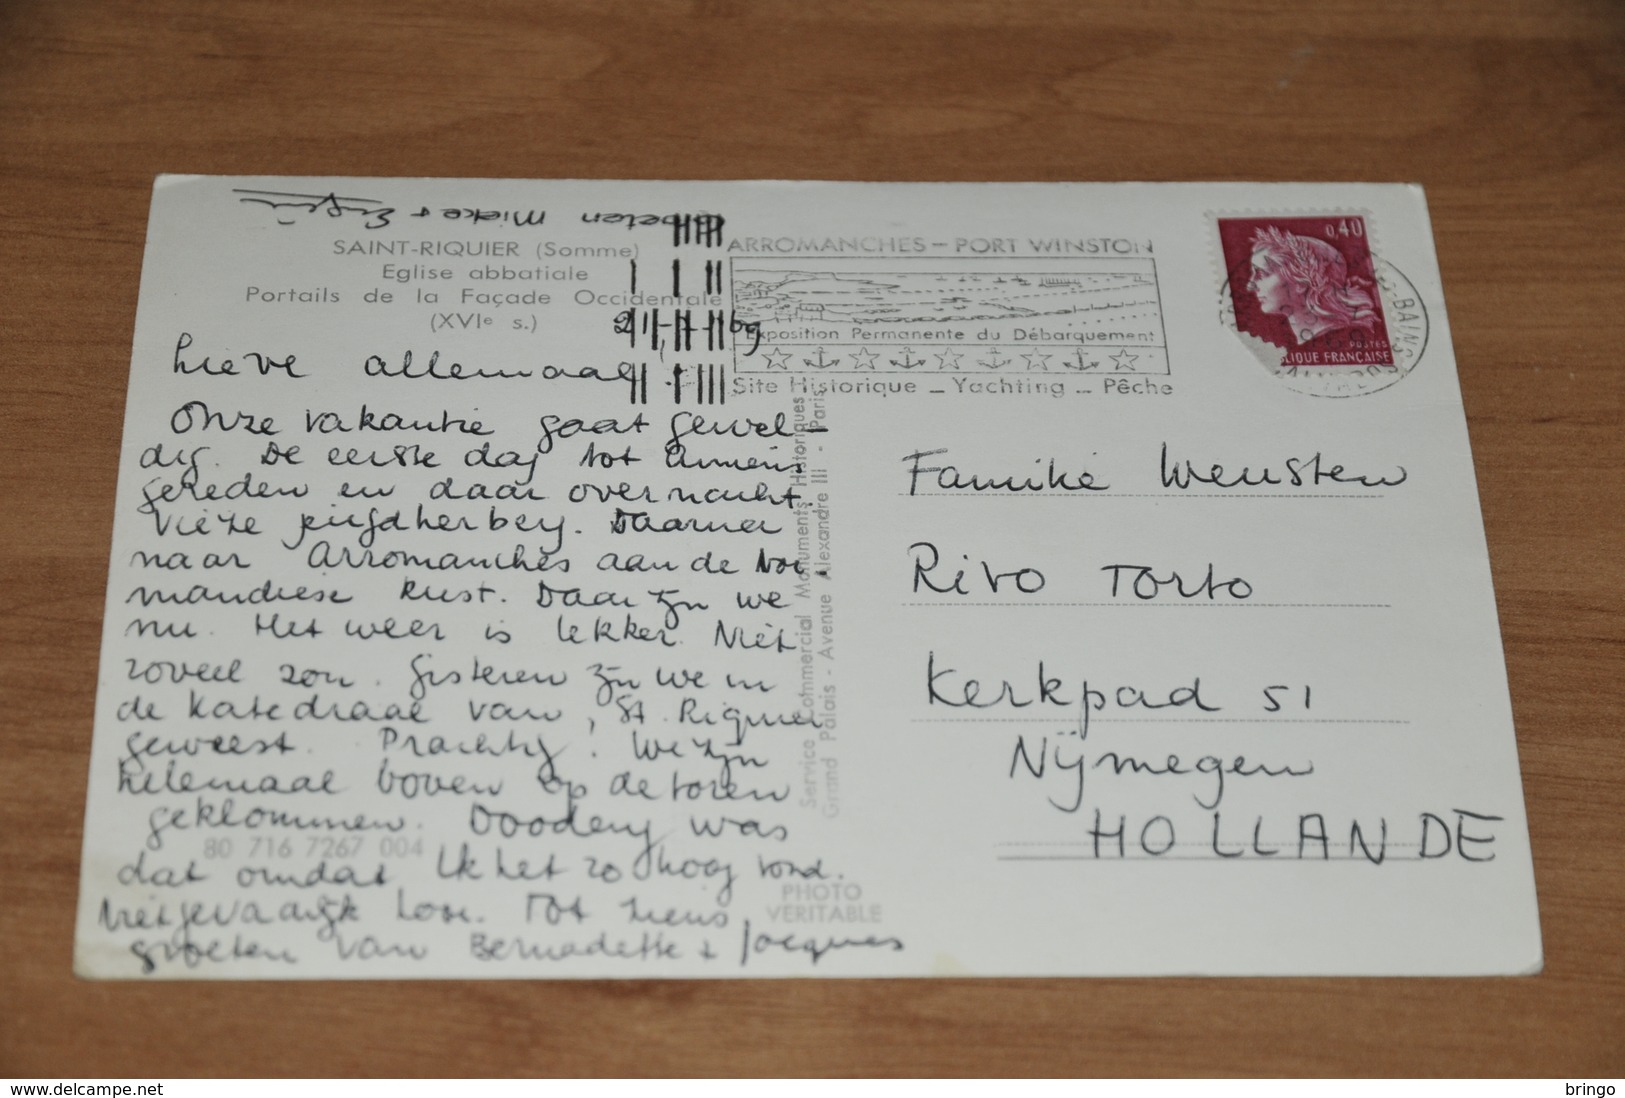 groeten Mieke +
SAINT-RIQUIER (Somme)
Eglise abbatiale
Portails de la Façade Occidentale
(XVIe s.)
21-7-'69
ARROMANCHES - PORT WINSTON
Exposition Permanente du Débarquement
Site Historique - Yachting - Pêche
0,40
POSTES
BLIQUE FRANÇAISE
lieve allemaal
Onze vakantie gaat gewel-
dig. De eerste dag tot Amiens
gereden en daar overnacht.
Vieze jeugdherberg. Daarna
naar Arromanches aan de Nor-
mandiese kust. Daar zijn we
nu. Het weer is lekker. Niet
zoveel zon. Gisteren zijn we in
de katedraal van St. Riquier
geweest. Prachtig! We zijn
helemaal boven op de toren
geklommen. Doodeng was
dat omdat ik het zo hoog vond.
Niet gevaarlijk hoor. Tot ziens,
groeten van Bernadette + Jacques
80 716 7267 004
PHOTO
VERITABLE
Service Commercial Monuments Historiques
Grand Palais - Avenue Alexandre III - Paris
Familie Weusten
Rivo Torto
Kerkpad 51
Nijmegen
HOLLANDE
www.delcampe.net
bringo